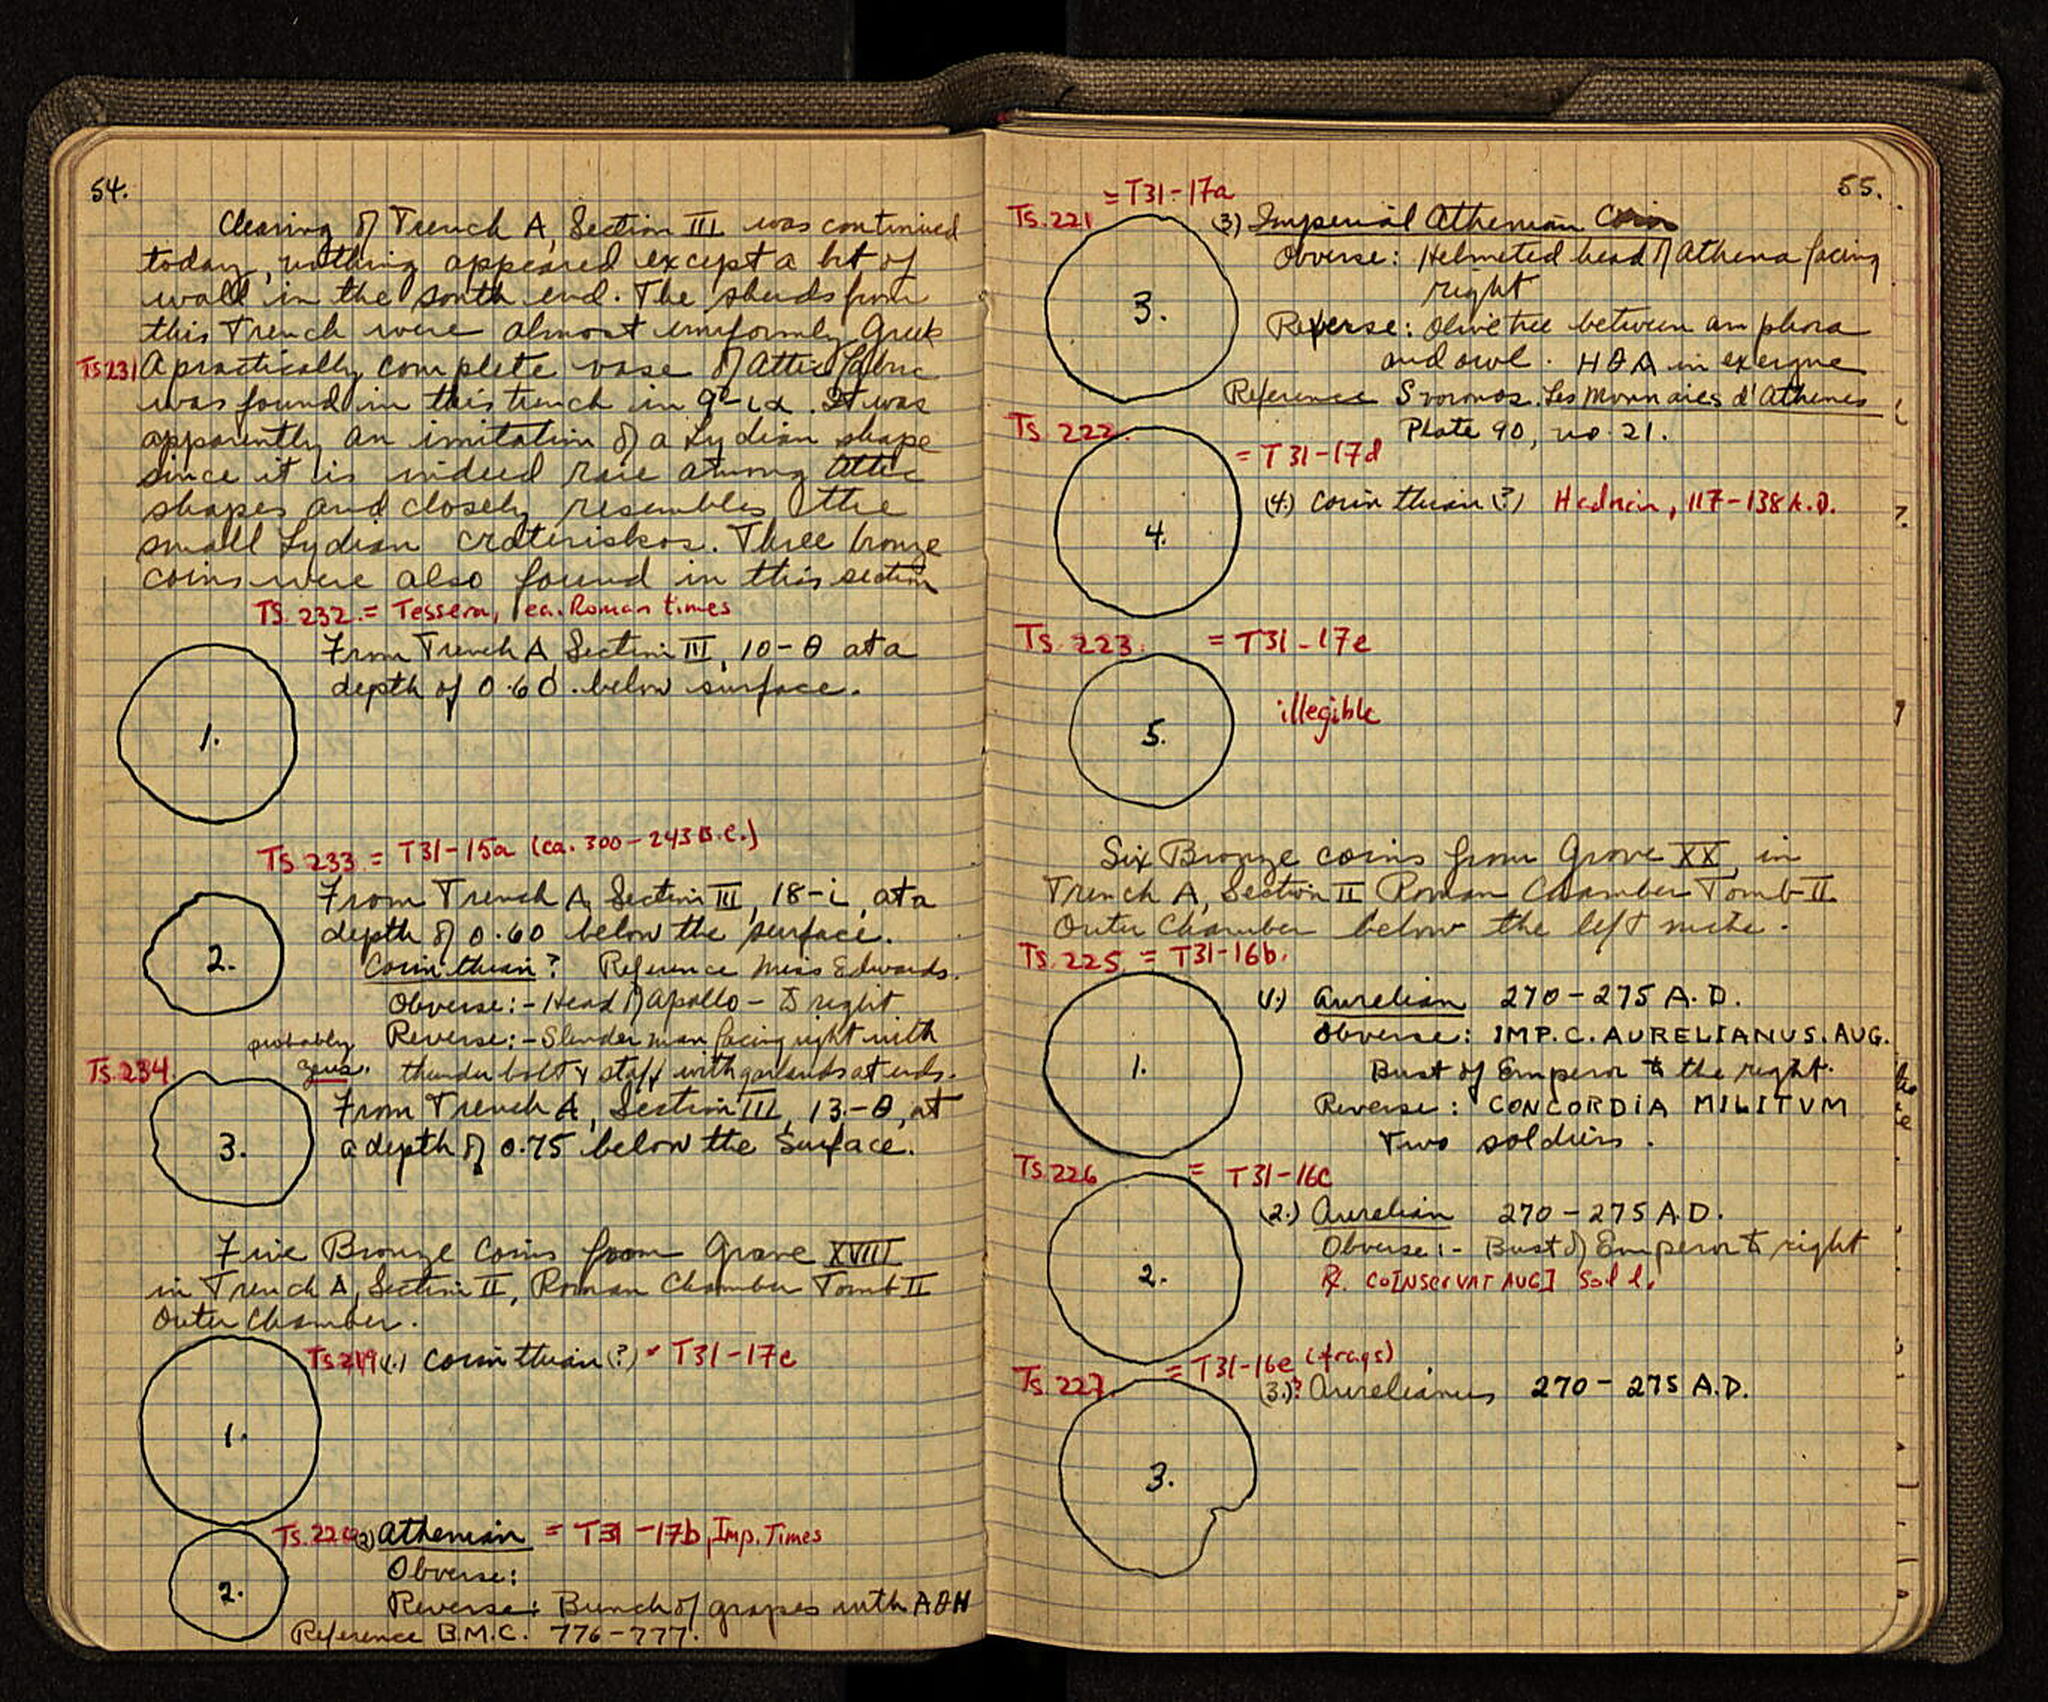 54.
Clearing of Trench A, Section III was continued
today, nothing appeared except a bit of
wall in the south end. The sherds from
this Trench were almost uniformly Greek
TS 231 A practically complete vase of Attic fabric
was found in this trench in 9-ια. It was
apparently an imitation of a Lydian shape
since it is indeed rare among Attic
shapes and closely resembles the
small Lydian crateriskos. Three bronze
coins were also found in this section
TS. 232. = Tessera, ea. Roman times
From Trench A, Section III, 10-θ at a
depth of 0.60. below surface.
1.
TS 233 = T31-15a (ca. 300-243 B.C.)
From Trench A, Section III, 18-ι, at a
depth of 0.60 below the surface.
2.
Corinthian? Reference Miss Edwards.
Obverse:- Head of Apollo - to right
probably Reverse:- Slender man facing right with
TS. 234. Zeus. thunderbolt & staff with garlands at ends.
From Trench A, Section III, 13.-θ, at
3. a depth of 0.75 below the surface.
Five Bronze Coins from Grave XVIII
in Trench A, Section II, Roman Chamber Tomb II
Outer Chamber.
TS 219 (1.) Corinthian (?) = T31-17c
1.
TS. 220 (2) Athenian = T31-17b, Imp. Times
Obverse:
2.
Reverse: Bunch of grapes with AΘH
Reference B.M.C. 776-777.
55.
= T31-17a
TS. 221 (3) Imperial Athenian Coin
Obverse: Helmeted head of Athena facing
right
3.
Reverse: Olive tree between amphora
and owl. HΘA in exergue
Reference Svoronos. Les Monnaies d'Athenes
TS 222. Plate 90, no. 21.
= T31-17d
(4.) Corinthian (?) Hadrian, 117-138 A.D.
4.
TS. 223. = T31-17e
illegible
5.
Six Bronze coins from Grave XX, in
Trench A, Section II Roman Chamber Tomb II
Outer Chamber below the left niche.
TS. 225. = T31-16b.
(1.) Aurelian 270-275 A.D.
Obverse: IMP.C.AURELIANUS.AUG.
1. Bust of Emperor to the right.
Reverse: CONCORDIA MILITVM
Two soldiers.
TS 226 = T31-16c
(2.) Aurelian 270-275 A.D.
Obverse:- Bust of Emperor to right
2. R. CO[NSERVAT AUG] Sol l.
TS 227. = T31-16e (frags)
(3.)? Aurelianus 270-275 A.D.
3.